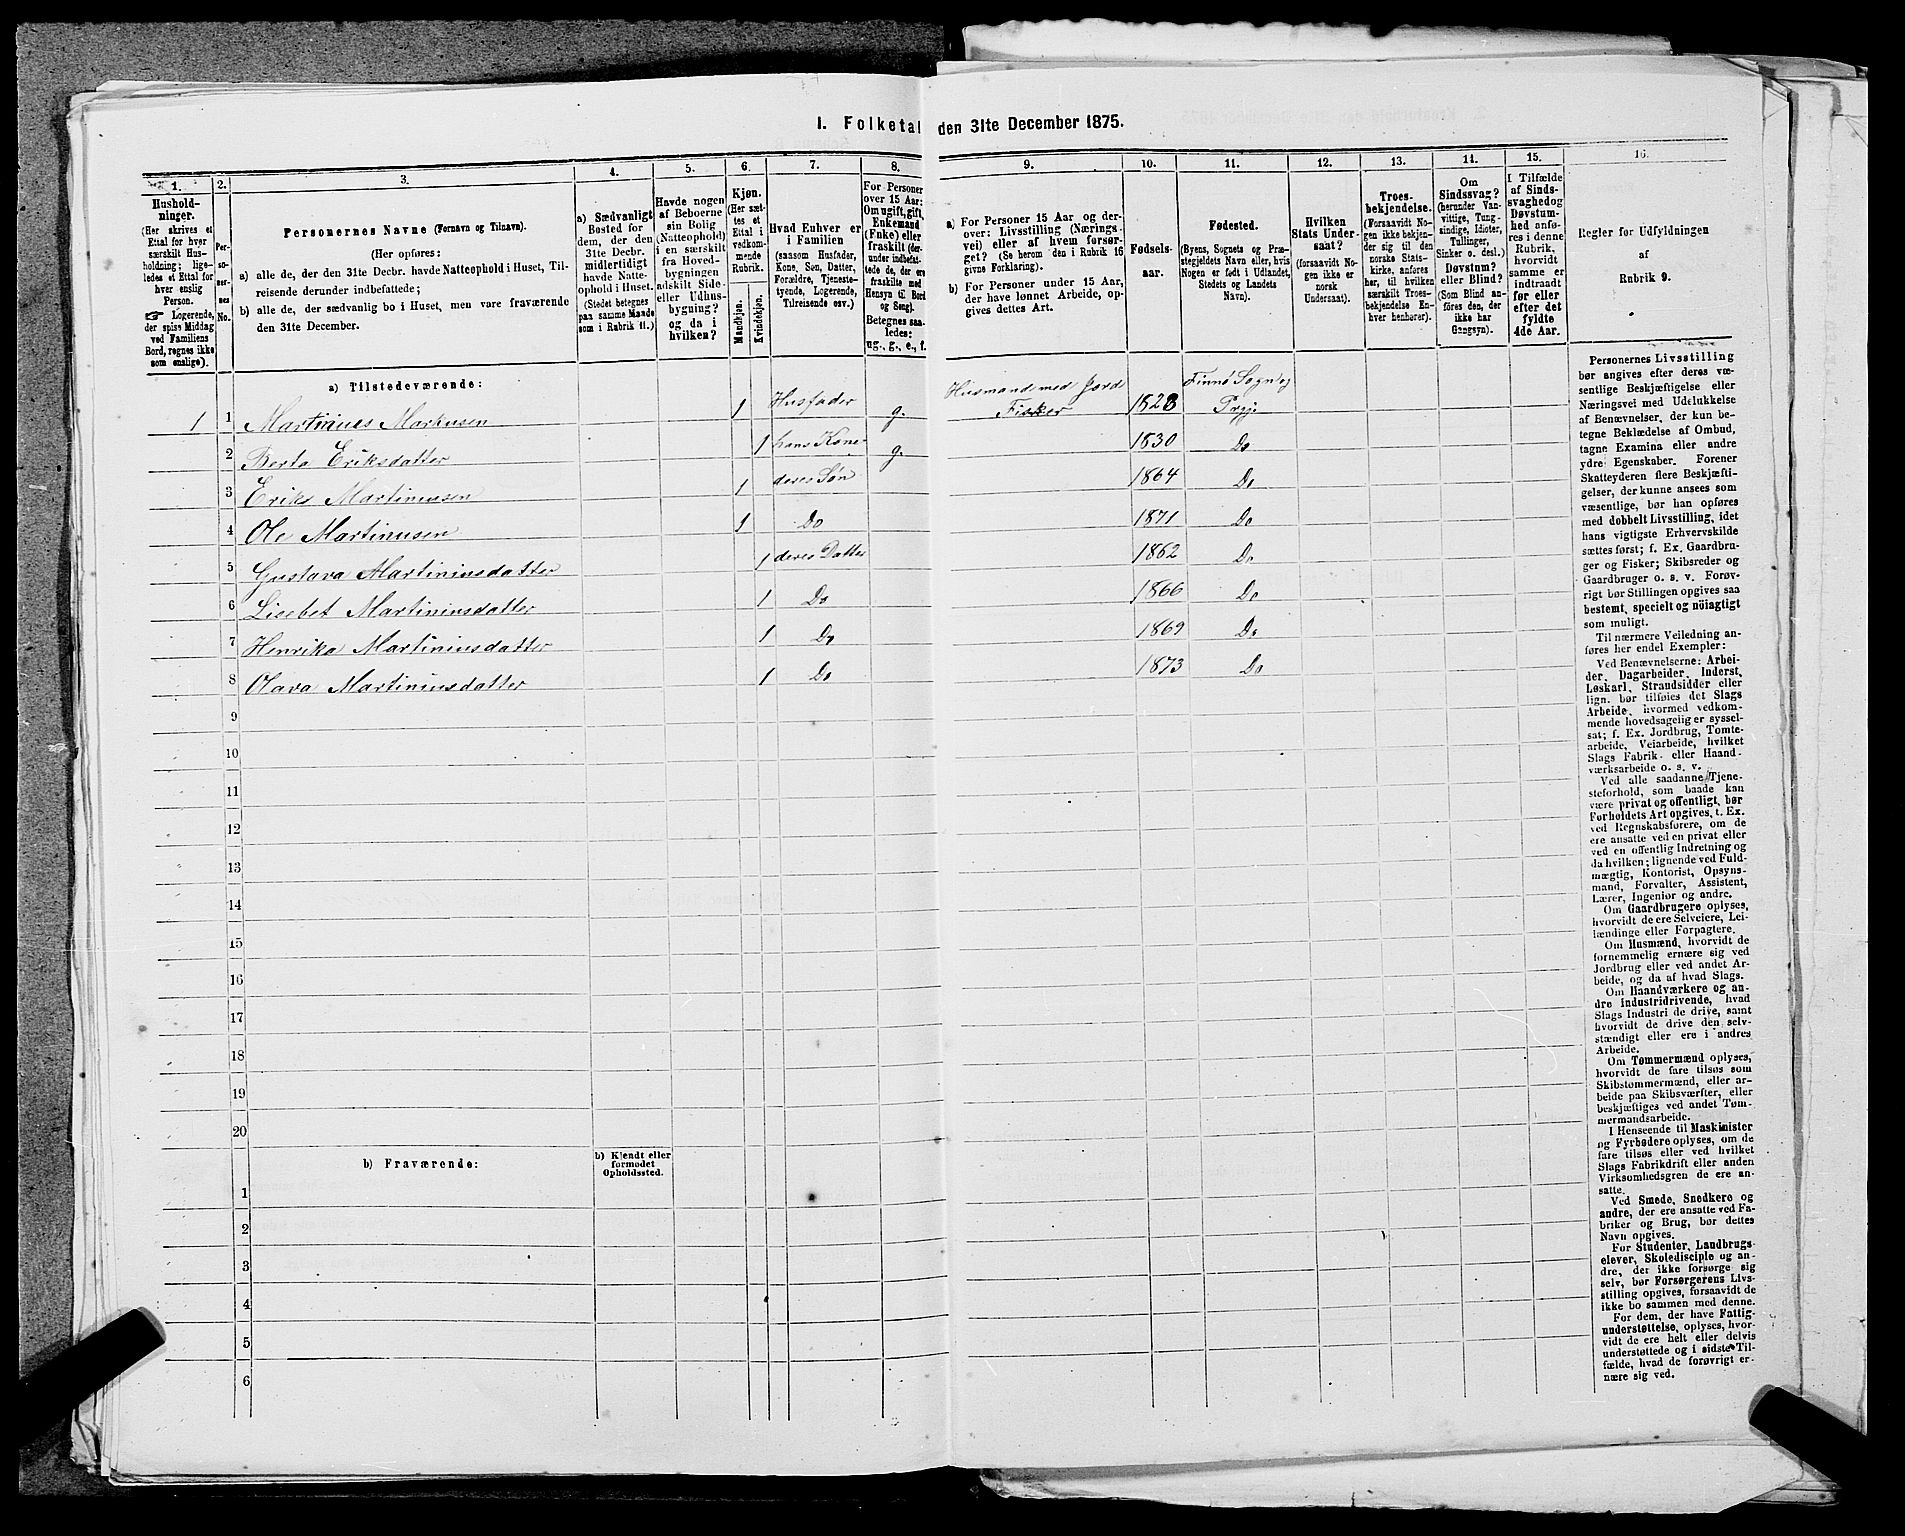 I. Folketal den 31te December 1875.
1. 2. 3. 4. 5. 6. 7. 8. 9. 10. 11. 12. 13. 14. 15. 16.
Hushold-
ninger.
(Her skrives et
Ettal for hver
særskilt Hus-
holdning; lige-
ledes et Ettal for
hver enslig
Person.
☞ Logerende,
der spise Middag
ved Familiens
Bord, regnes ikke
som enslige).
Per-
so-
ner-
nes
No.
Personernes Navne (Fornavn og Tilnavn).
(Her opføres:
a) alle de, der den 31te Decbr. havde Natteophold i Huset, Til-
reisende derunder indbefattede;
b) alle de, der sædvanlig bo i Huset, men vare fraværende
den 31te December.
a) Sædvanligt
Bosted for
dem, der den
31te Decbr.
midlertidigt
havde Natte-
ophold i Huset.
(Stedet betegnes
paa samme Maade
som i Rubrik 11.)
Havde nogen
af Beboerne
sin Bolig
(Natteophold)
i en særskilt
fra Hoved-
bygningen
adskilt Side-
eller Udhus-
bygning?
og da i
hvilken?
Kjøn.
(Her sæt-
tes et
Ettal i
vedkom-
mende
Rubrik.
Mandkjøn.
Kvindekjøn.
Hvad Enhver er
i Familien
(saasom Husfader,
Kone, Søn, Datter,
Forældre, Tjeneste-
tyende, Logerende,
Tilreisende osv.)
For Personer
over 15 Aar:
Om ugift, gift,
Enkemand
(Enke) eller
fraskilt (der-
under indbefat-
tede de, der ere
fraskilte med
Hensyn til Bord
og Seng).
Betegnes saa-
ledes:
ug., g., e., f.
a) For Personer 15 Aar og der-
over: Livsstilling (Nærings-
vei) eller af hvem forsør-
get? (Se herom den i Rubrik 16
givne Forklaring).
b) For Personer under 15 Aar,
der have lønnet Arbeide, op-
gives dettes Art.
Fødsels-
aar.
Fødested.
(Byens, Sognets og Præ-
stegjeldets Navn eller, hvis
Nogen er født i Udlandet,
Stedets og Landets
Navn).
Hvilken
Stats Under-
saat?
(forsaavidt No-
gen ikke er
norsk
Undersaat).
Troes-
bekjendelse.
(Forsaavidt No-
gen ikke bekjen-
der sig til den
norske Stats-
kirke, anføres
her, til hvilken
særskilt Troes-
bekjendelse En-
hver henhører).
Om
Sindssvag?
(herunder Van-
vittige, Tung-
sindige, Idioter,
Tullinger,
Sinker o. desl.).
Døvstum?
eller Blind?
(Som Blind an-
føres den, der
ikke har
Gangsyn).
I Tilfælde
af Sinds-
svaghed og
Døvstum-
hed anfø-
res i denne
Rubrik,
hvorvidt
samme er
indtraadt
før eller
efter det
fyldte
4de Aar.
Regler for Udfyldningen
af
Rubrik 9.
a) Tilstedeværende:
1 1 Martinus Markusen 1 Husfader g. Husmand med Jord Fisker 1828 Finnø Sogn og Prgj.
2 Berta Eriksdatter 1 hans Kone g. 1830 Do
3 Eriks Martinusen 1 deres Søn 1864 Do
4 Ole Martinusen 1 Do 1871 Do
5 Gustava Martiniusdatter 1 deres Datter 1862 Do
6 Lisebet Martiniusdatter 1 Do 1866 Do
7 Henrika Martiniusdatter 1 Do 1869 Do
8 Olava Martiniusdatter 1 Do 1873 Do
9
10
11
12
13
14
15
16
17
18
19
20
b) Fraværende:
b) Kjendt eller
formodet
Opholdssted.
1
2
3
4
5
6
Personernes Livsstilling
bør angives efter deres væ-
sentlige Beskjæftigelse eller
Næringsvei med Udelukkelse
af Benævnelser, der kun be-
tegne Beklædelse af Ombud,
tagne Examina eller andre
ydre Egenskaber. Forener
Skatteyderen flere Beskjæfti-
gelser, der kunne ansees som
væsentlige, bør han opføres
med dobbelt Livsstilling, idet
hans vigtigste Erhvervskilde
sættes først; f. Ex. Gaardbru-
ger og Fisker; Skibsreder og
Gaardbruger o. s. v. Forøv-
rigt bør Stillingen opgives saa
bestemt, specielt og nöiagtigt
som muligt.
Til nærmere Veiledning an-
føres her endel Exempler:
Ved Benævnelserne: Arbei-
der, Dagarbeider, Inderst,
Løskarl, Strandsidder eller
lign. bør tilføies det Slags
Arbeide, hvormed vedkom-
mende hovedsagelig er syssel-
sat; f. Ex. Jordbrug, Tomte-
arbeide, Veiarbeide, hvilket
Slags Fabrik- eller Haand-
værksarbeide o. s. v.
Ved alle saadanne Tjene-
steforhold, som baade kan
være privat og offentligt, bør
Forholdets Art opgives, t. Ex.
ved Regnskabsførere, om de
ere ansatte ved en privat eller
ved en offentlig Indretning og
da hvilken; lignende ved Fuld-
mægtig, Kontorist, Opsyns-
mand, Forvalter, Assistent,
Lærer, Ingeniør og andre.
Om Gaardbrugere oplyses,
hvorvidt de ere Selveiere, Lei-
lændinge eller Forpagtere.
Om Husmænd, hvorvidt de
fornemmelig ernære sig ved
Jordbrug eller ved andet Ar-
beide, og da af hvad Slags.
Om Haandværkere og an-
dre Industridrivende, hvad
Slags Industri de drive, samt
hvorvidt de drive den selv-
stændigt eller ere i andres
Arbeide.
Om Tømmermænd oplyses,
hvorvidt de fare tilsøs som
Skibstømmermænd, eller ar-
beide paa Skibsværfter, eller
beskjæftiges ved andet Tøm-
mermandsarbeide.
I Henseende til Maskinister
og Fyrbødere oplyses, om de
fare tilsøs eller ved hvilket
Slags Fabrikdrift eller anden
Virksomhedsgren de ere an-
satte.
Ved Smede, Snedkere og
andre, der ere ansatte ved Fa-
briker og Brug, bør dettes
Navn opgives.
For Studenter, Landbrugs-
elever, Skoledisciple og an-
dre, der ikke forsørge sig
selv, bør Forsørgerens Livs-
stilling opgives, forsaavidt de
ikke bo sammen med denne.
For dem, der have Fattig-
understøttelse, oplyses, hvor-
vidt de ere helt eller delvis
understøttede og i sidste Til-
fælde, hvad de forøvrigt er-
nære sig ved.